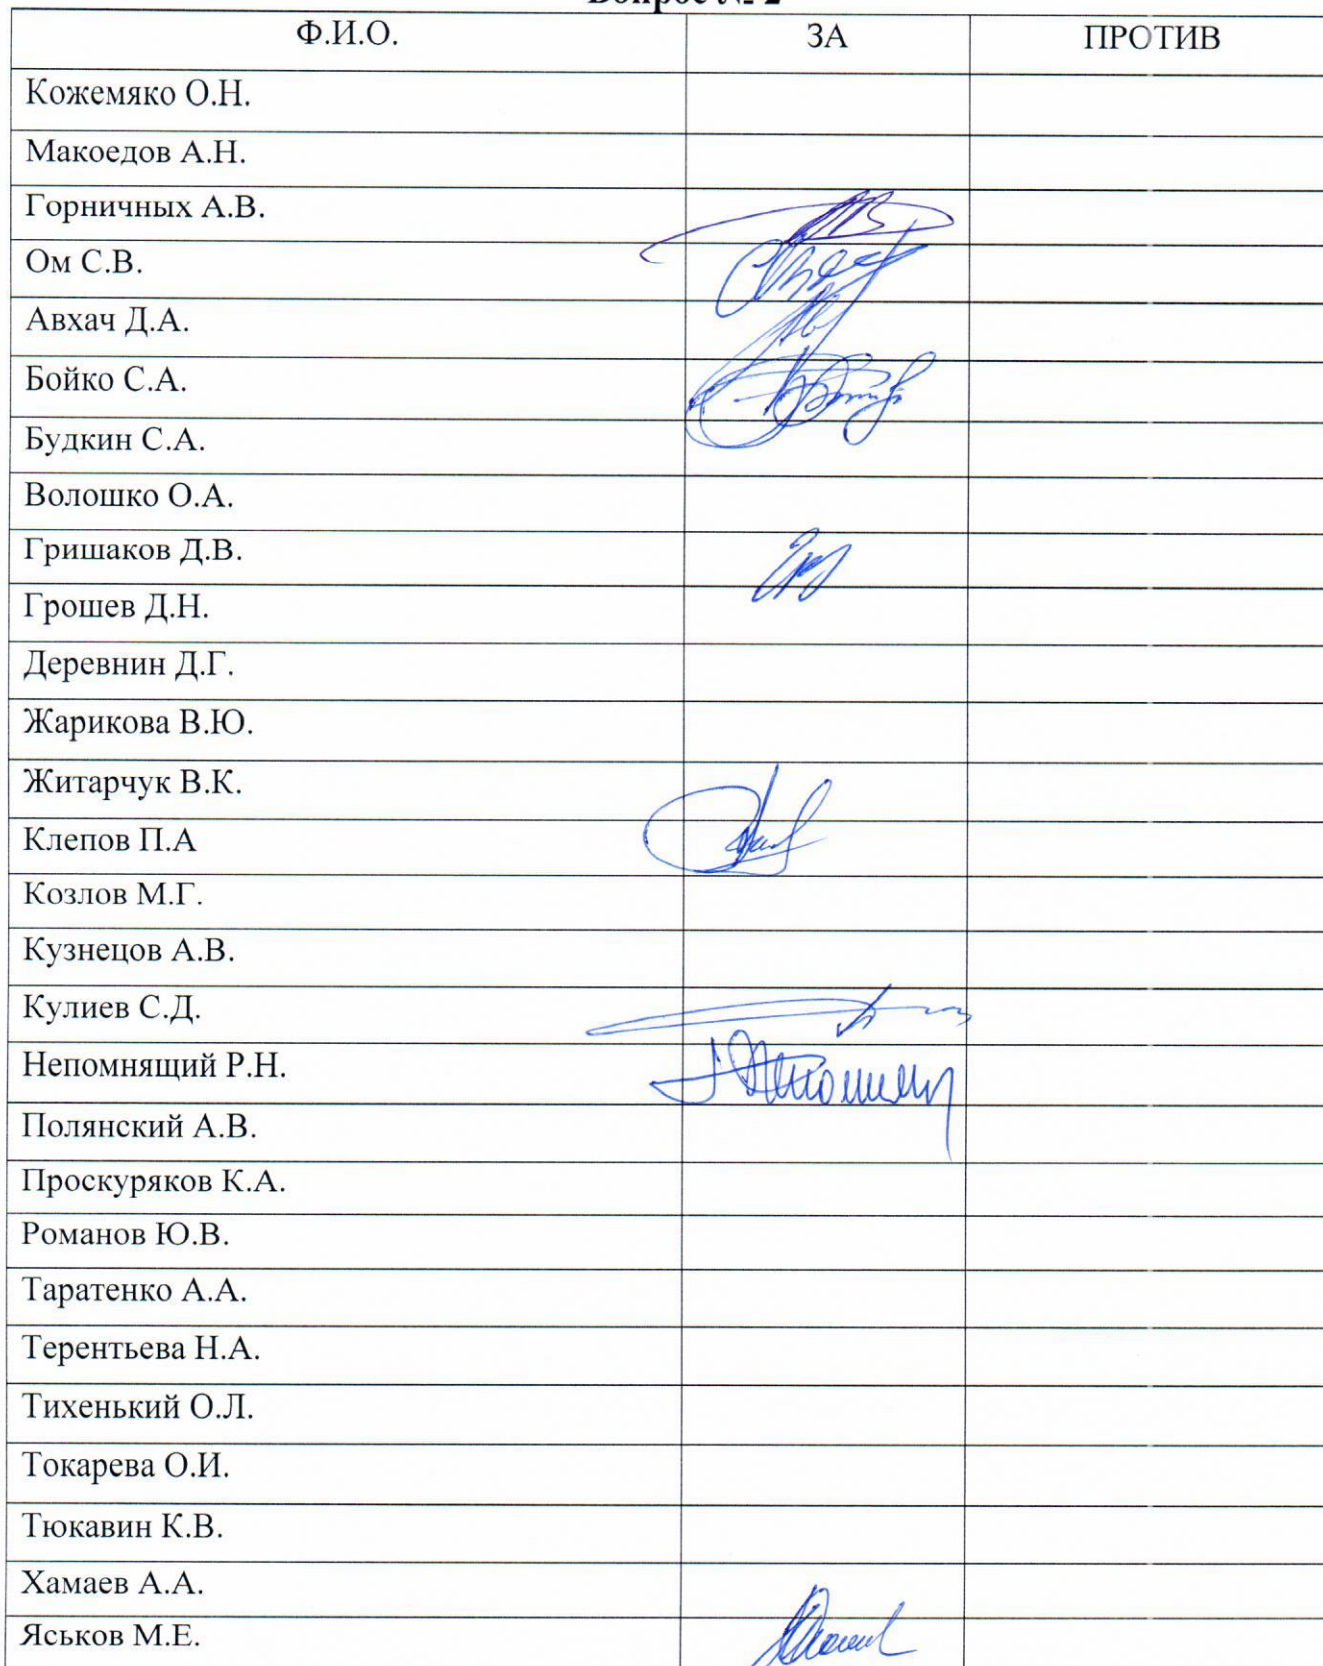 Вопрос № 2
Ф.И.О. ЗА ПРОТИВ
Кожемяко О.Н.
Макоедов А.Н.
Горничных А.В.
Ом С.В.
Авхач Д.А.
Бойко С.А.
Будкин С.А.
Волошко О.А.
Гришаков Д.В.
Грошев Д.Н.
Деревнин Д.Г.
Жарикова В.Ю.
Житарчук В.К.
Клепов П.А
Козлов М.Г.
Кузнецов А.В.
Кулиев С.Д.
Непомнящий Р.Н.
Полянский А.В.
Проскуряков К.А.
Романов Ю.В.
Таратенко А.А.
Терентьева Н.А.
Тихенький О.Л.
Токарева О.И.
Тюкавин К.В.
Хамаев А.А.
Яськов М.Е.